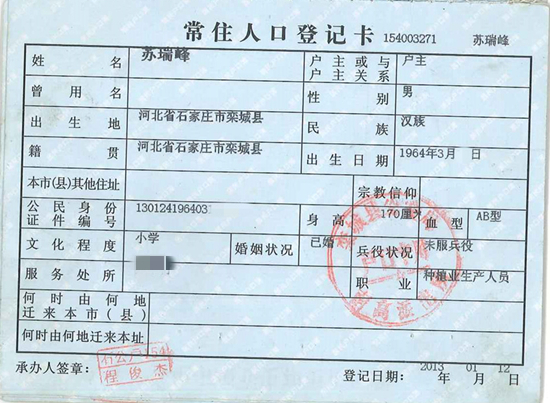 常住人口登记卡 154003271 苏瑞峰
姓名 苏瑞峰 户主或与户主关系 户主
曾用名 性别 男
出生地 河北省石家庄市栾城县 民族 汉族
籍贯 河北省石家庄市栾城县 出生日期 1964年3月 日
本市(县)其他住址 宗教信仰
公民身份证件编号 130124196403 身高 170厘米 血型 AB型
文化程度 小学 婚姻状况 已婚 兵役状况 未服兵役
服务处所 职业 种植业生产人员
何时由何地迁来本市(县)
何时由何地迁来本址
承办人签章: 程俊杰 登记日期: 2013年 01月 12日